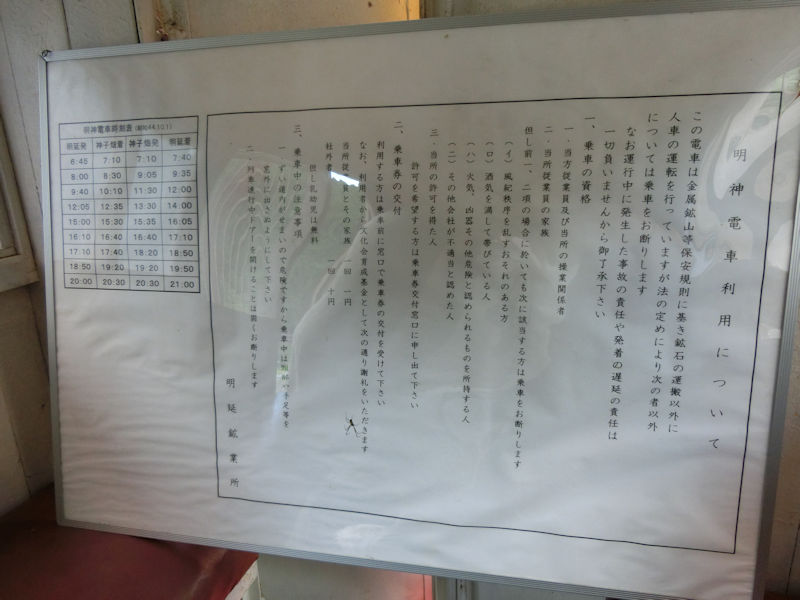 明神電車利用について
この電車は金属鉱山等保安規則に基き鉱石の運搬以外に
人車の運転を行っていますが法の定めにより次の者以外
については乗車をお断りします
なお運行中に発生した事故の責任や発着の遅延の責任は
一切負いませんから御了承下さい
一、乗車の資格
一．当方従業員及び当所の操業関係者
二．当所従業員の家族
但し前一、二項の場合に於いても次に該当する方は乗車をお断りします
（イ）風紀秩序を乱すおそれのある方
（ロ）酒気を満して帯びている人
（ハ）火気、凶器その他危険と認められるものを所持する人
（ニ）その他会社が不適当と認めた人
三．当所の許可を得た人
許可を希望する方は乗車券交付窓口に申し出て下さい
二、乗車券の交付
利用する方は乗車前に窓口で乗車券の交付を受けて下さい
なお、利用者から文化会育成基金として次の通り謝礼をいただきます
当所従業員とその家族 一回 一円
社外者 一回 十円
但し乳幼児は無料
三、乗車中の注意事項
一．ずい道内がせまいので危険ですから乗車中は頭部や手足等を
窓外に出さぬようにして下さい
二．列車進行中ドアーを開けることは固くお断りします
明延鉱業所
明神電車時刻表（昭和44.10.1）
明延発 神子畑着 神子畑発 明延着
6:45 7:10 7:10 7:40
8:00 8:30 9:05 9:35
9:40 10:10 11:30 12:00
12:05 12:35 13:30 14:00
15:00 15:30 15:35 16:05
16:10 16:40 16:40 17:10
17:10 17:40 18:20 18:50
18:50 19:20 19:20 19:50
20:00 20:30 20:30 21:00